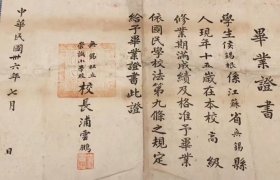 畢業證書
學生侯錫根係江蘇省無錫縣
人現年十五歲在本校高級
修業期滿成績及格准予畢業
依國民學校法第九條之規定
給予畢業證書此證
無錫私立
崇誠小學校
校長浦雪鵬
中華民國卅六年七月 日